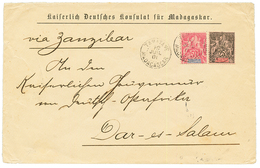 Kaiserlich Deutsches Konsulat für Madagaskar.
via Zanzibar
An den
Kaiserlichen Gouverneur
von Deutsch-Ostafrika
Dar-es-Salam